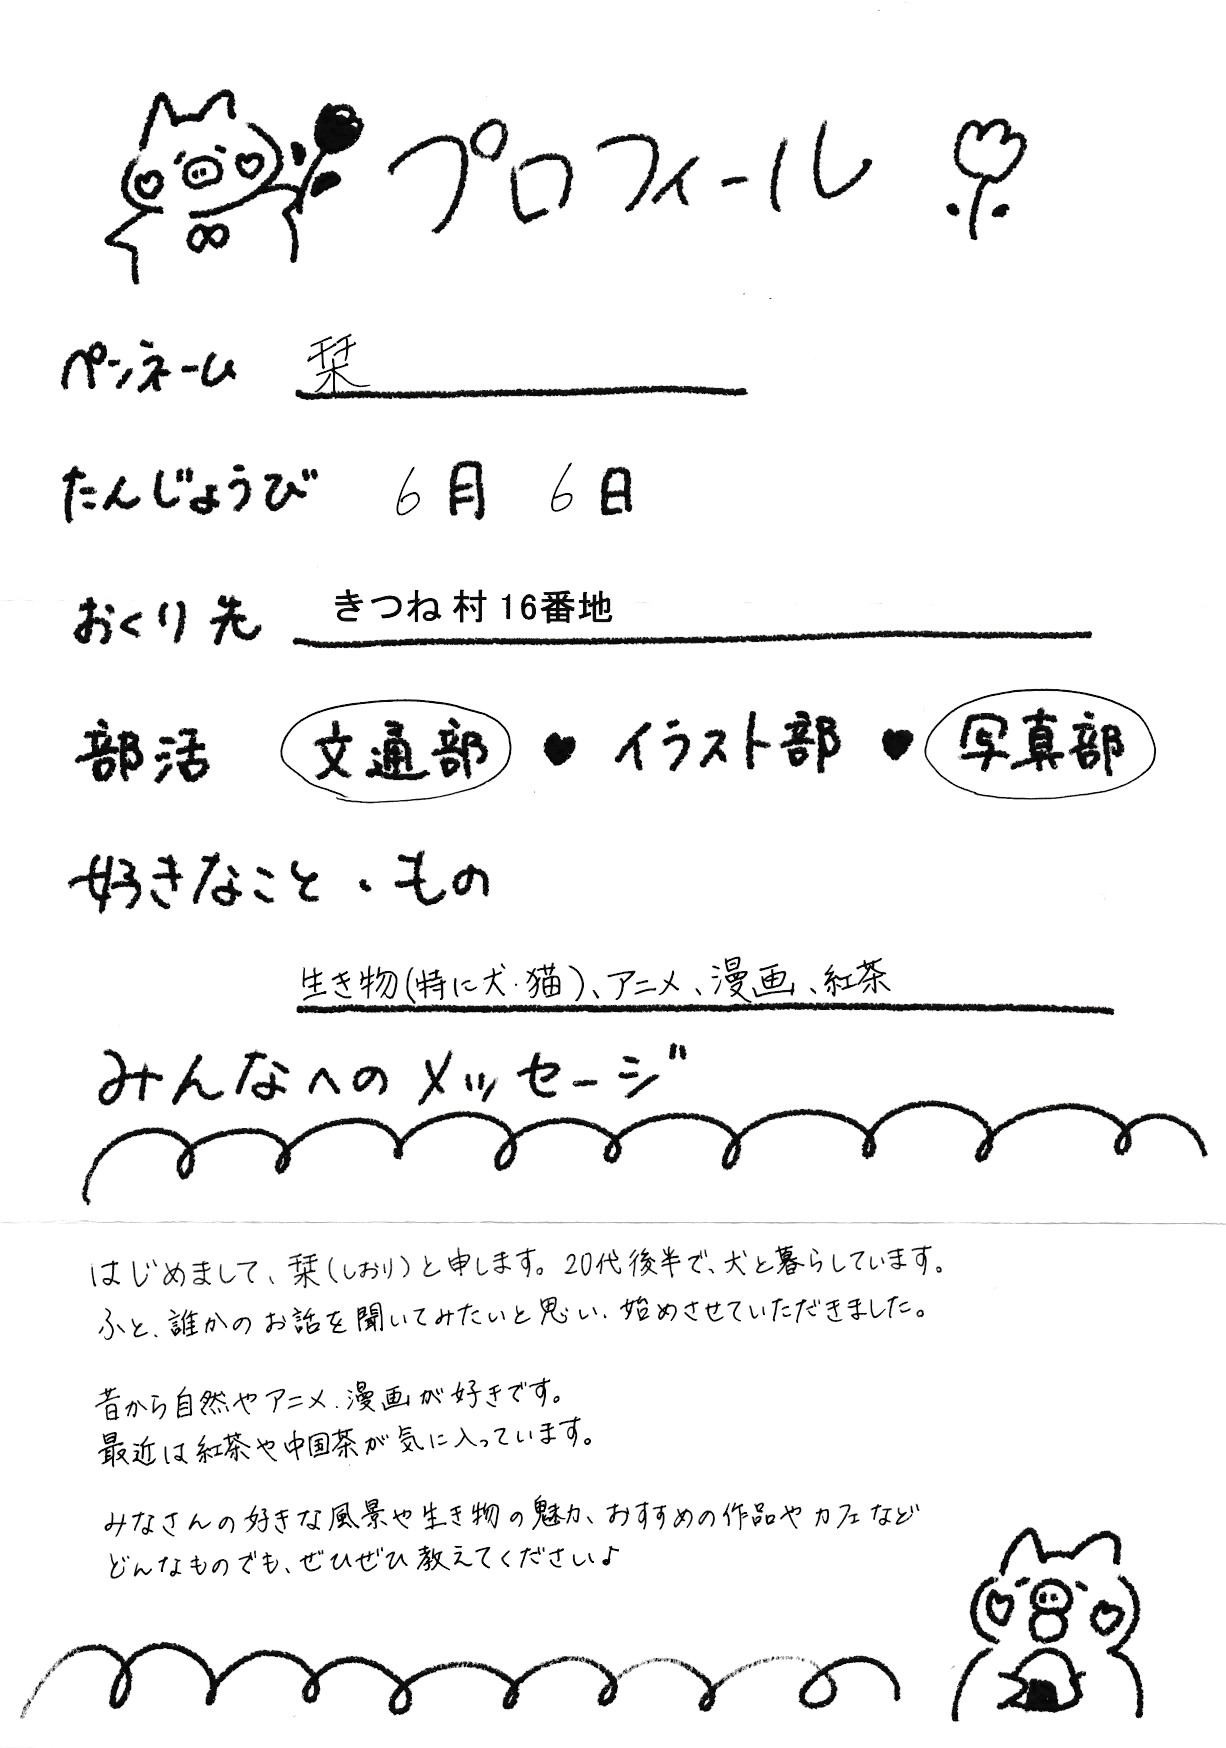 プロフィール
ペンネーム 栞
たんじょうび 6月 6日
おくり先 きつね村 16番地
部活 文通部 ♥ イラスト部 ♥ 写真部
好きなこと・もの
生き物(特に犬・猫)、アニメ、漫画、紅茶
みんなへのメッセージ
はじめまして、栞(しおり)と申します。20代後半で、犬と暮らしています。
ふと、誰かのお話を聞いてみたいと思い、始めさせていただきました。
昔から自然やアニメ、漫画が好きです。
最近は紅茶や中国茶が気に入っています。
みなさんの好きな風景や生き物の魅力、おすすめの作品やカフェなど
どんなものでも、ぜひぜひ教えてください♪